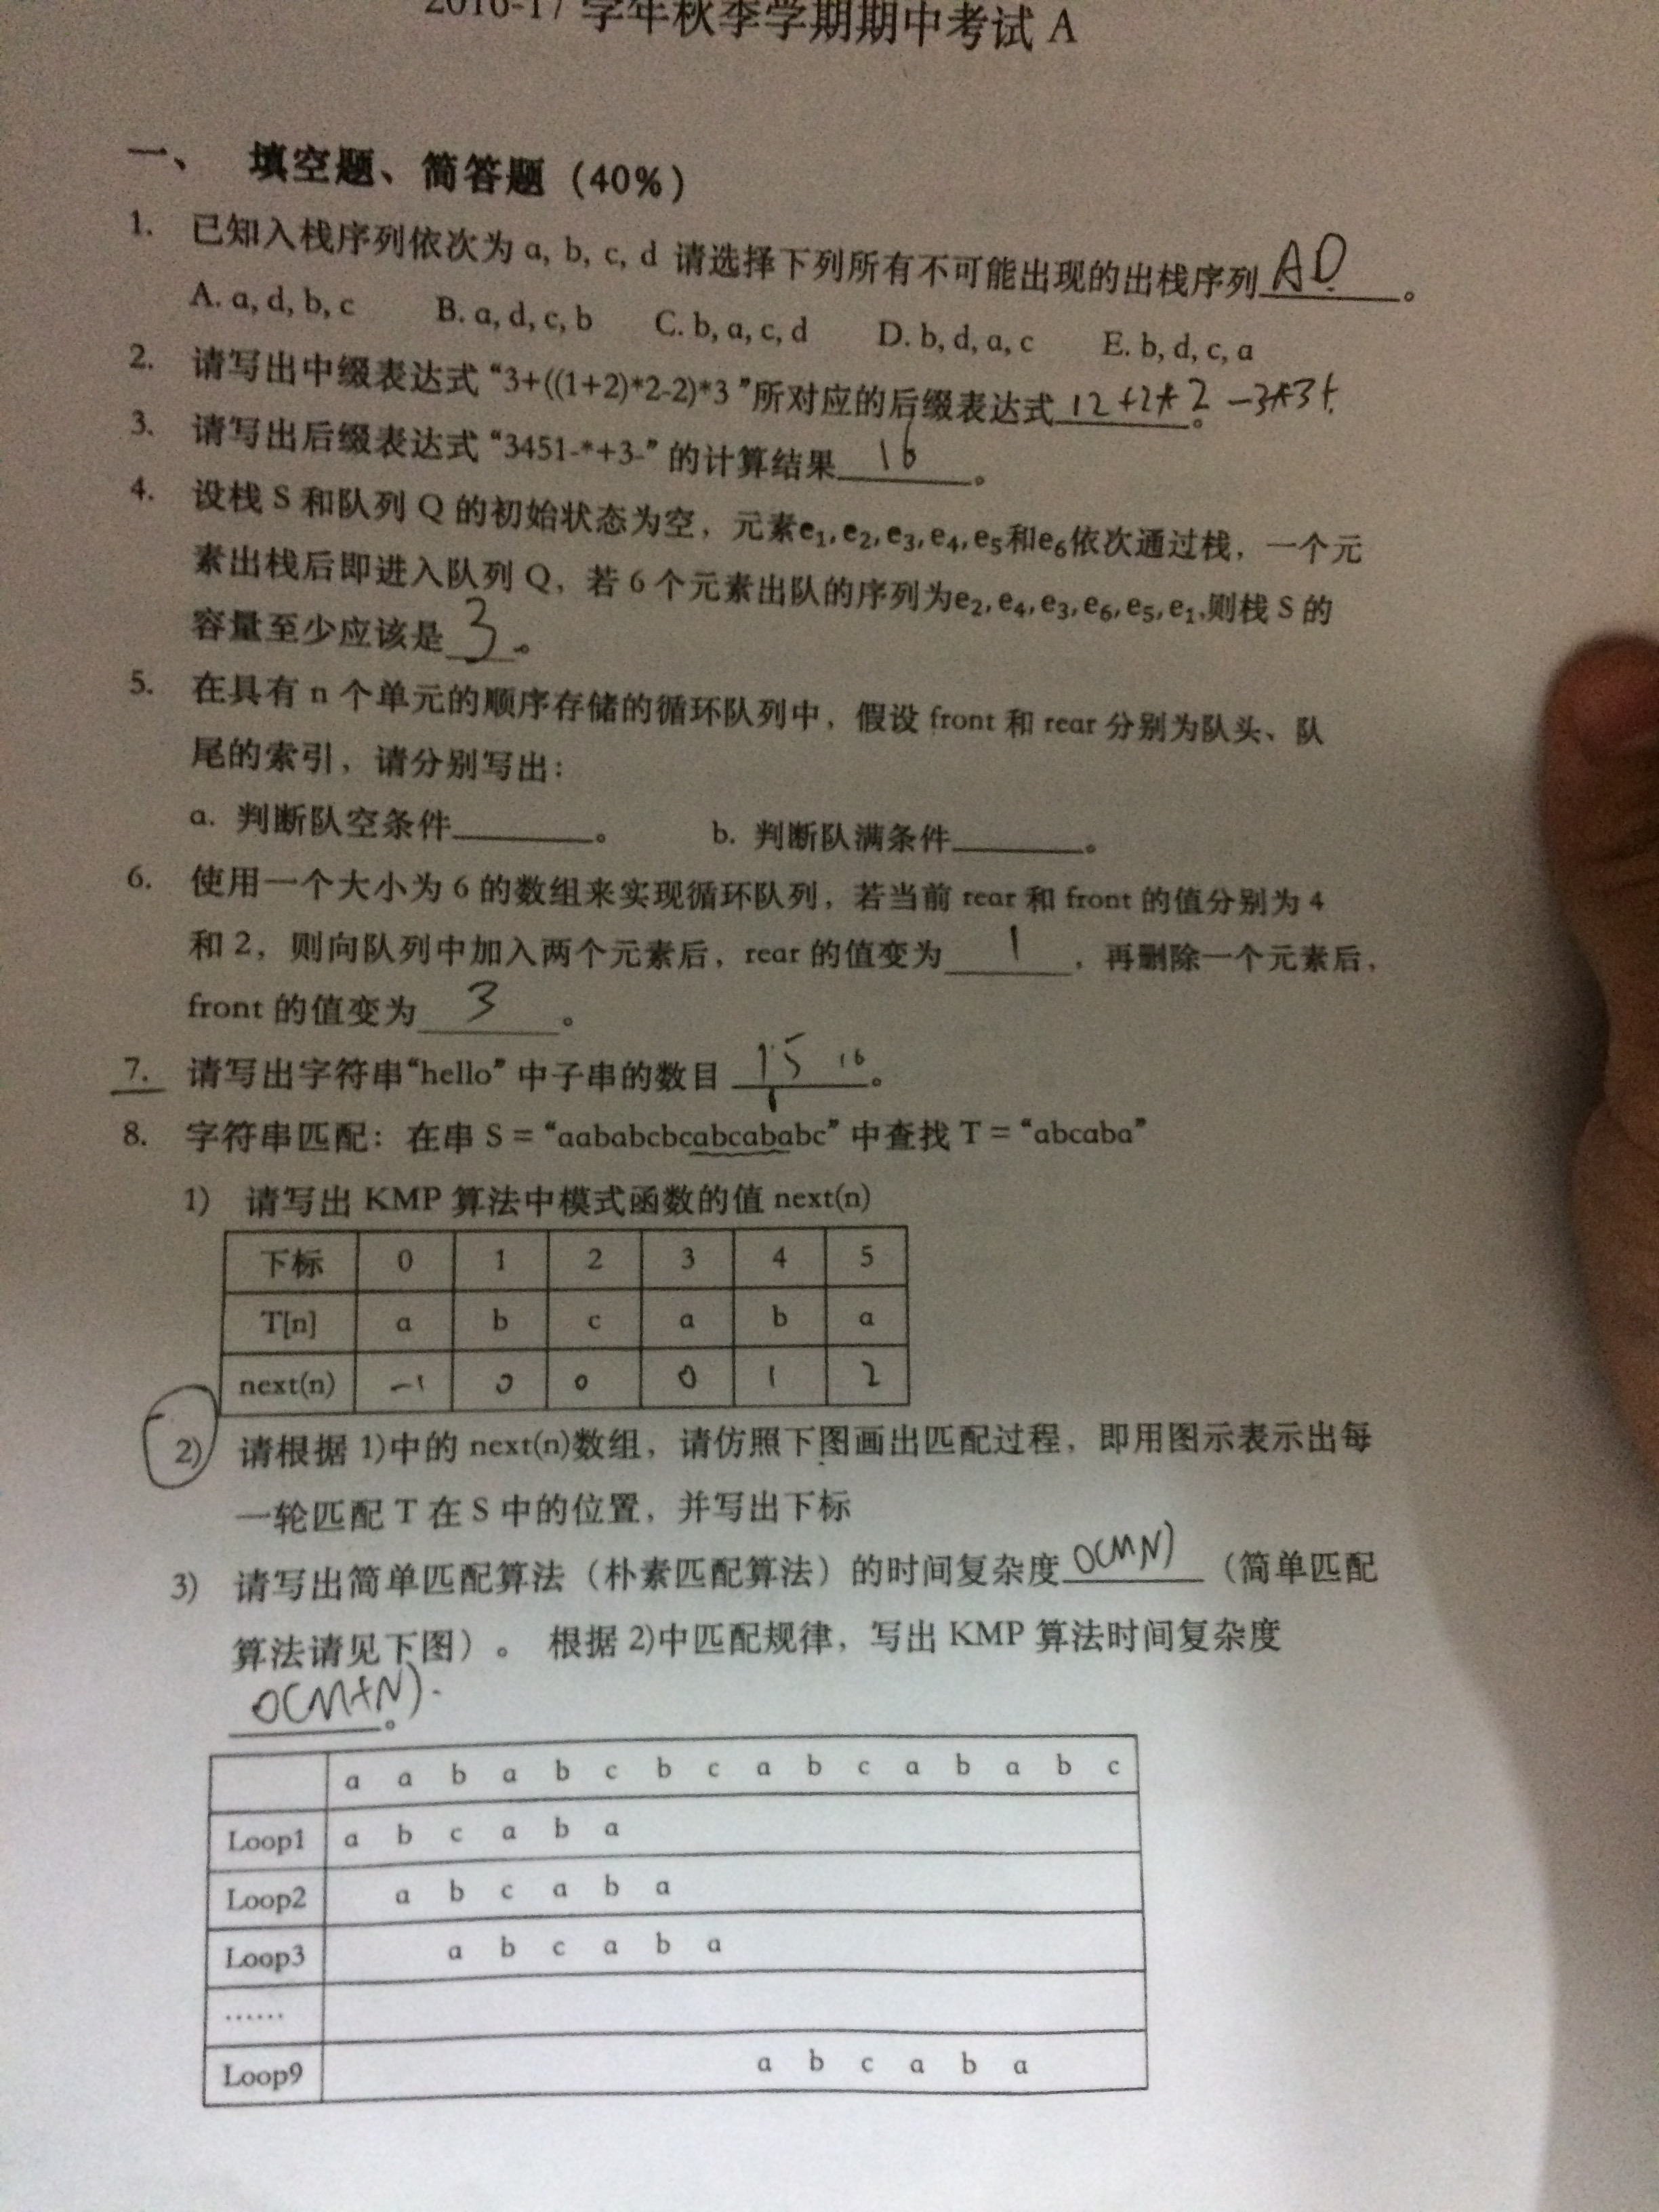 2016-17 学年秋季学期期中考试 A
一、 填空题、简答题（40%）
1. 已知入栈序列依次为 a, b, c, d 请选择下列所有不可能出现的出栈序列 AD 。
A. a, d, b, c B. a, d, c, b C. b, a, c, d D. b, d, a, c E. b, d, c, a
2. 请写出中缀表达式“3+((1+2)*2-2)*3 ”所对应的后缀表达式 12+2*2 。 -3*3+
3. 请写出后缀表达式“3451-*+3-” 的计算结果 16 。
4. 设栈 S 和队列 Q 的初始状态为空，元素e₁, e₂, e₃, e₄, e₅和e₆依次通过栈，一个元
素出栈后即进入队列 Q，若 6 个元素出队的序列为e₂, e₄, e₃, e₆, e₅, e₁,则栈 S 的
容量至少应该是 3 。
5. 在具有 n 个单元的顺序存储的循环队列中，假设 front 和 rear 分别为队头、队
尾的索引，请分别写出：
a. 判断队空条件________。 b. 判断队满条件________。
6. 使用一个大小为 6 的数组来实现循环队列，若当前 rear 和 front 的值分别为 4
和 2，则向队列中加入两个元素后，rear 的值变为 1 ，再删除一个元素后，
front 的值变为 3 。
7. 请写出字符串“hello” 中子串的数目 15 16 。
8. 字符串匹配：在串 S = “aababcbcabcababc” 中查找 T = “abcaba”
1) 请写出 KMP 算法中模式函数的值 next(n)
下标 0 1 2 3 4 5
T[n] a b c a b a
next(n) -1 0 0 0 1 2
2) 请根据 1)中的 next(n)数组，请仿照下图画出匹配过程，即用图示表示出每
一轮匹配 T 在 S 中的位置，并写出下标
3) 请写出简单匹配算法（朴素匹配算法）的时间复杂度 O(MN) （简单匹配
算法请见下图）。 根据 2)中匹配规律，写出 KMP 算法时间复杂度
O(M+N) 。
a a b a b c b c a b c a b a b c
Loop1 a b c a b a
Loop2 a b c a b a
Loop3 a b c a b a
……
Loop9 a b c a b a